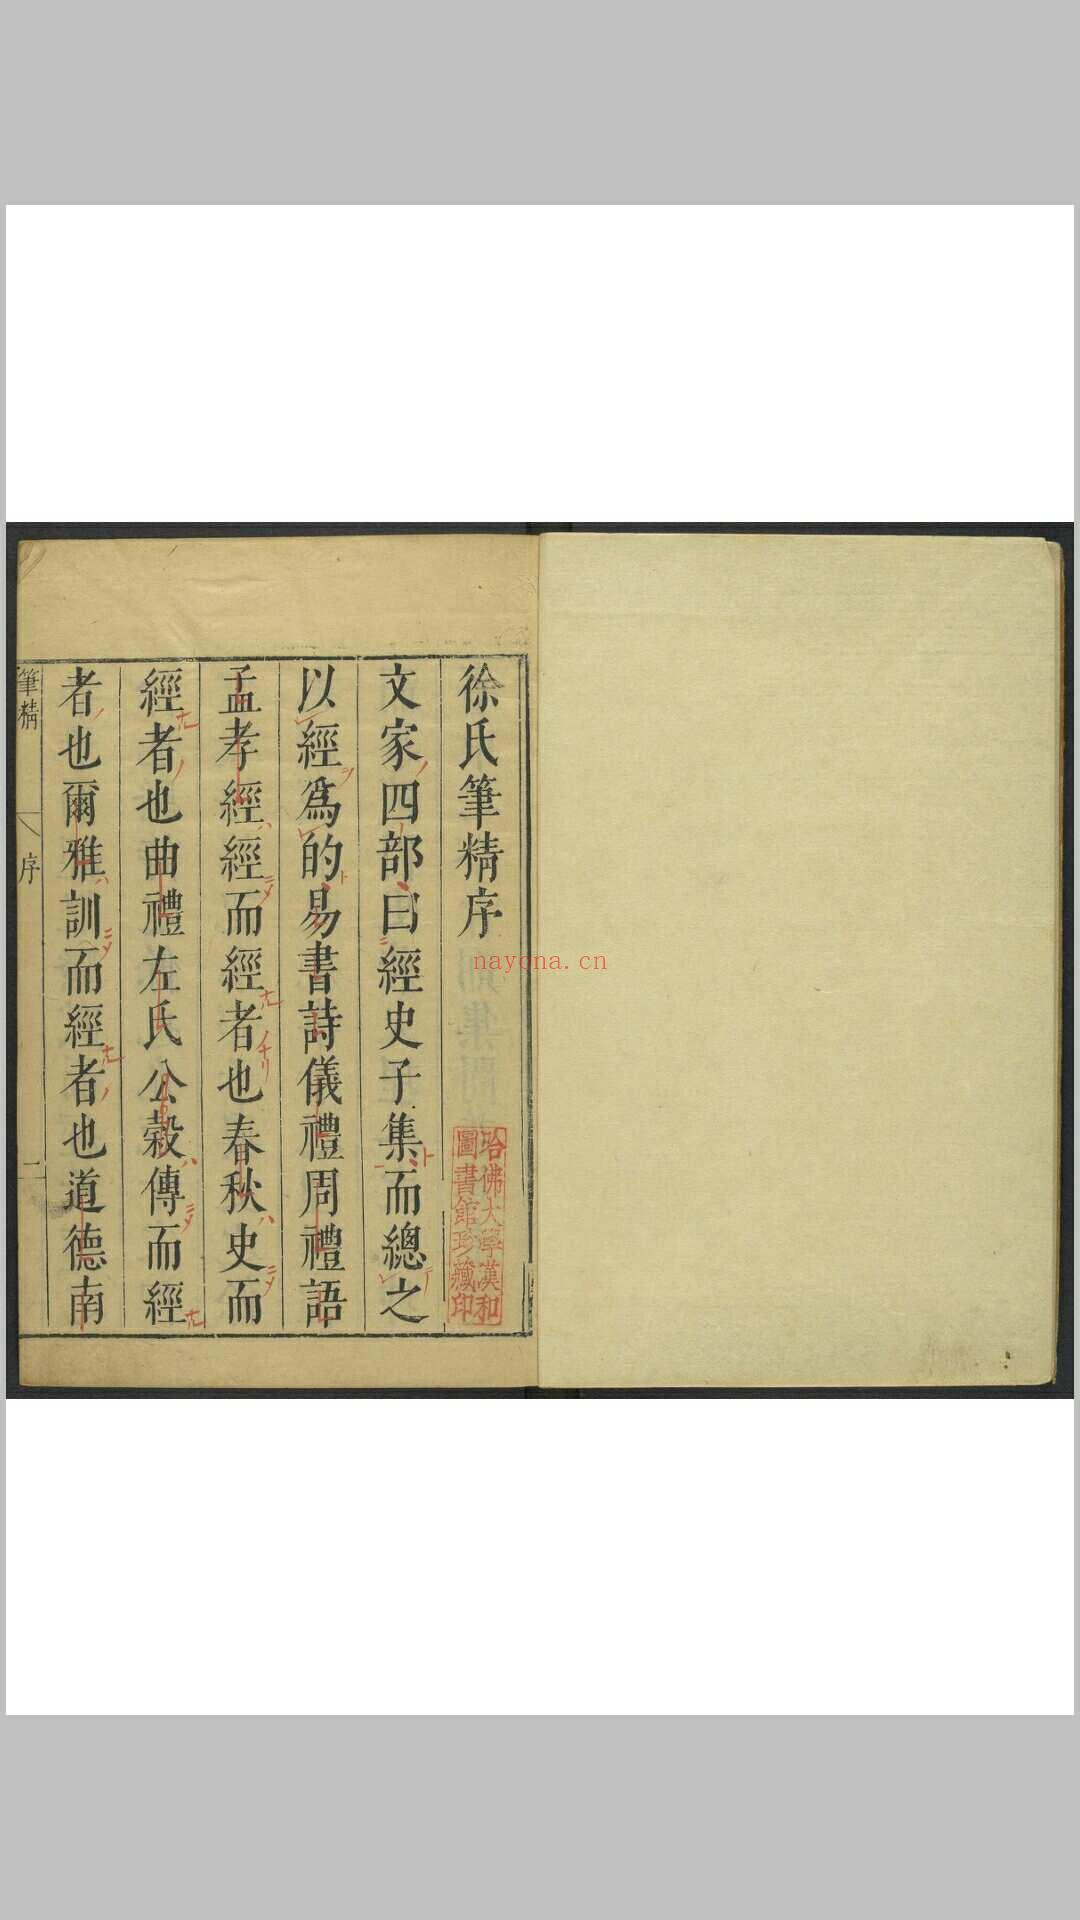 徐氏筆精序
文家四部曰經史子集而總之
以經爲的易書詩儀禮周禮語
孟孝經經而經者也春秋史而
經者也曲禮左氏公穀傳而經
者也爾雅訓而經者也道德南
筆精
序
哈佛大學漢和
圖書館珍藏印
nayona.cn